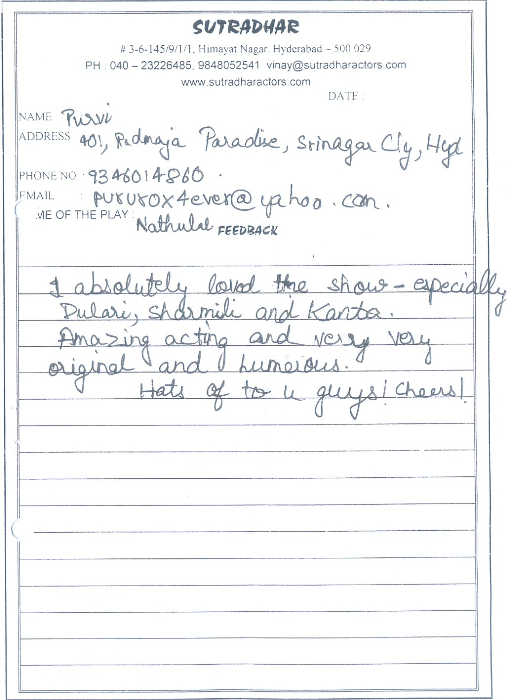 SUTRADHAR
# 3-6-145/9/1/1, Himayat Nagar, Hyderabad – 500 029
PH : 040 – 23226485, 9848052541 vinay@sutradharactors.com
www.sutradharactors.com
DATE :
NAME Purvi
ADDRESS 401, Padmaja Paradise, Srinagar Cly, Hyd
PHONE NO : 9346014860 .
EMAIL : pururox4ever@yahoo.com.
ME OF THE PLAY : Nathulal FEEDBACK
I absolutely loved the show - especially
Dulari, Sharmili and Kanta.
Amazing acting and very very
original and humerous.
Hats of to u guys! Cheers!